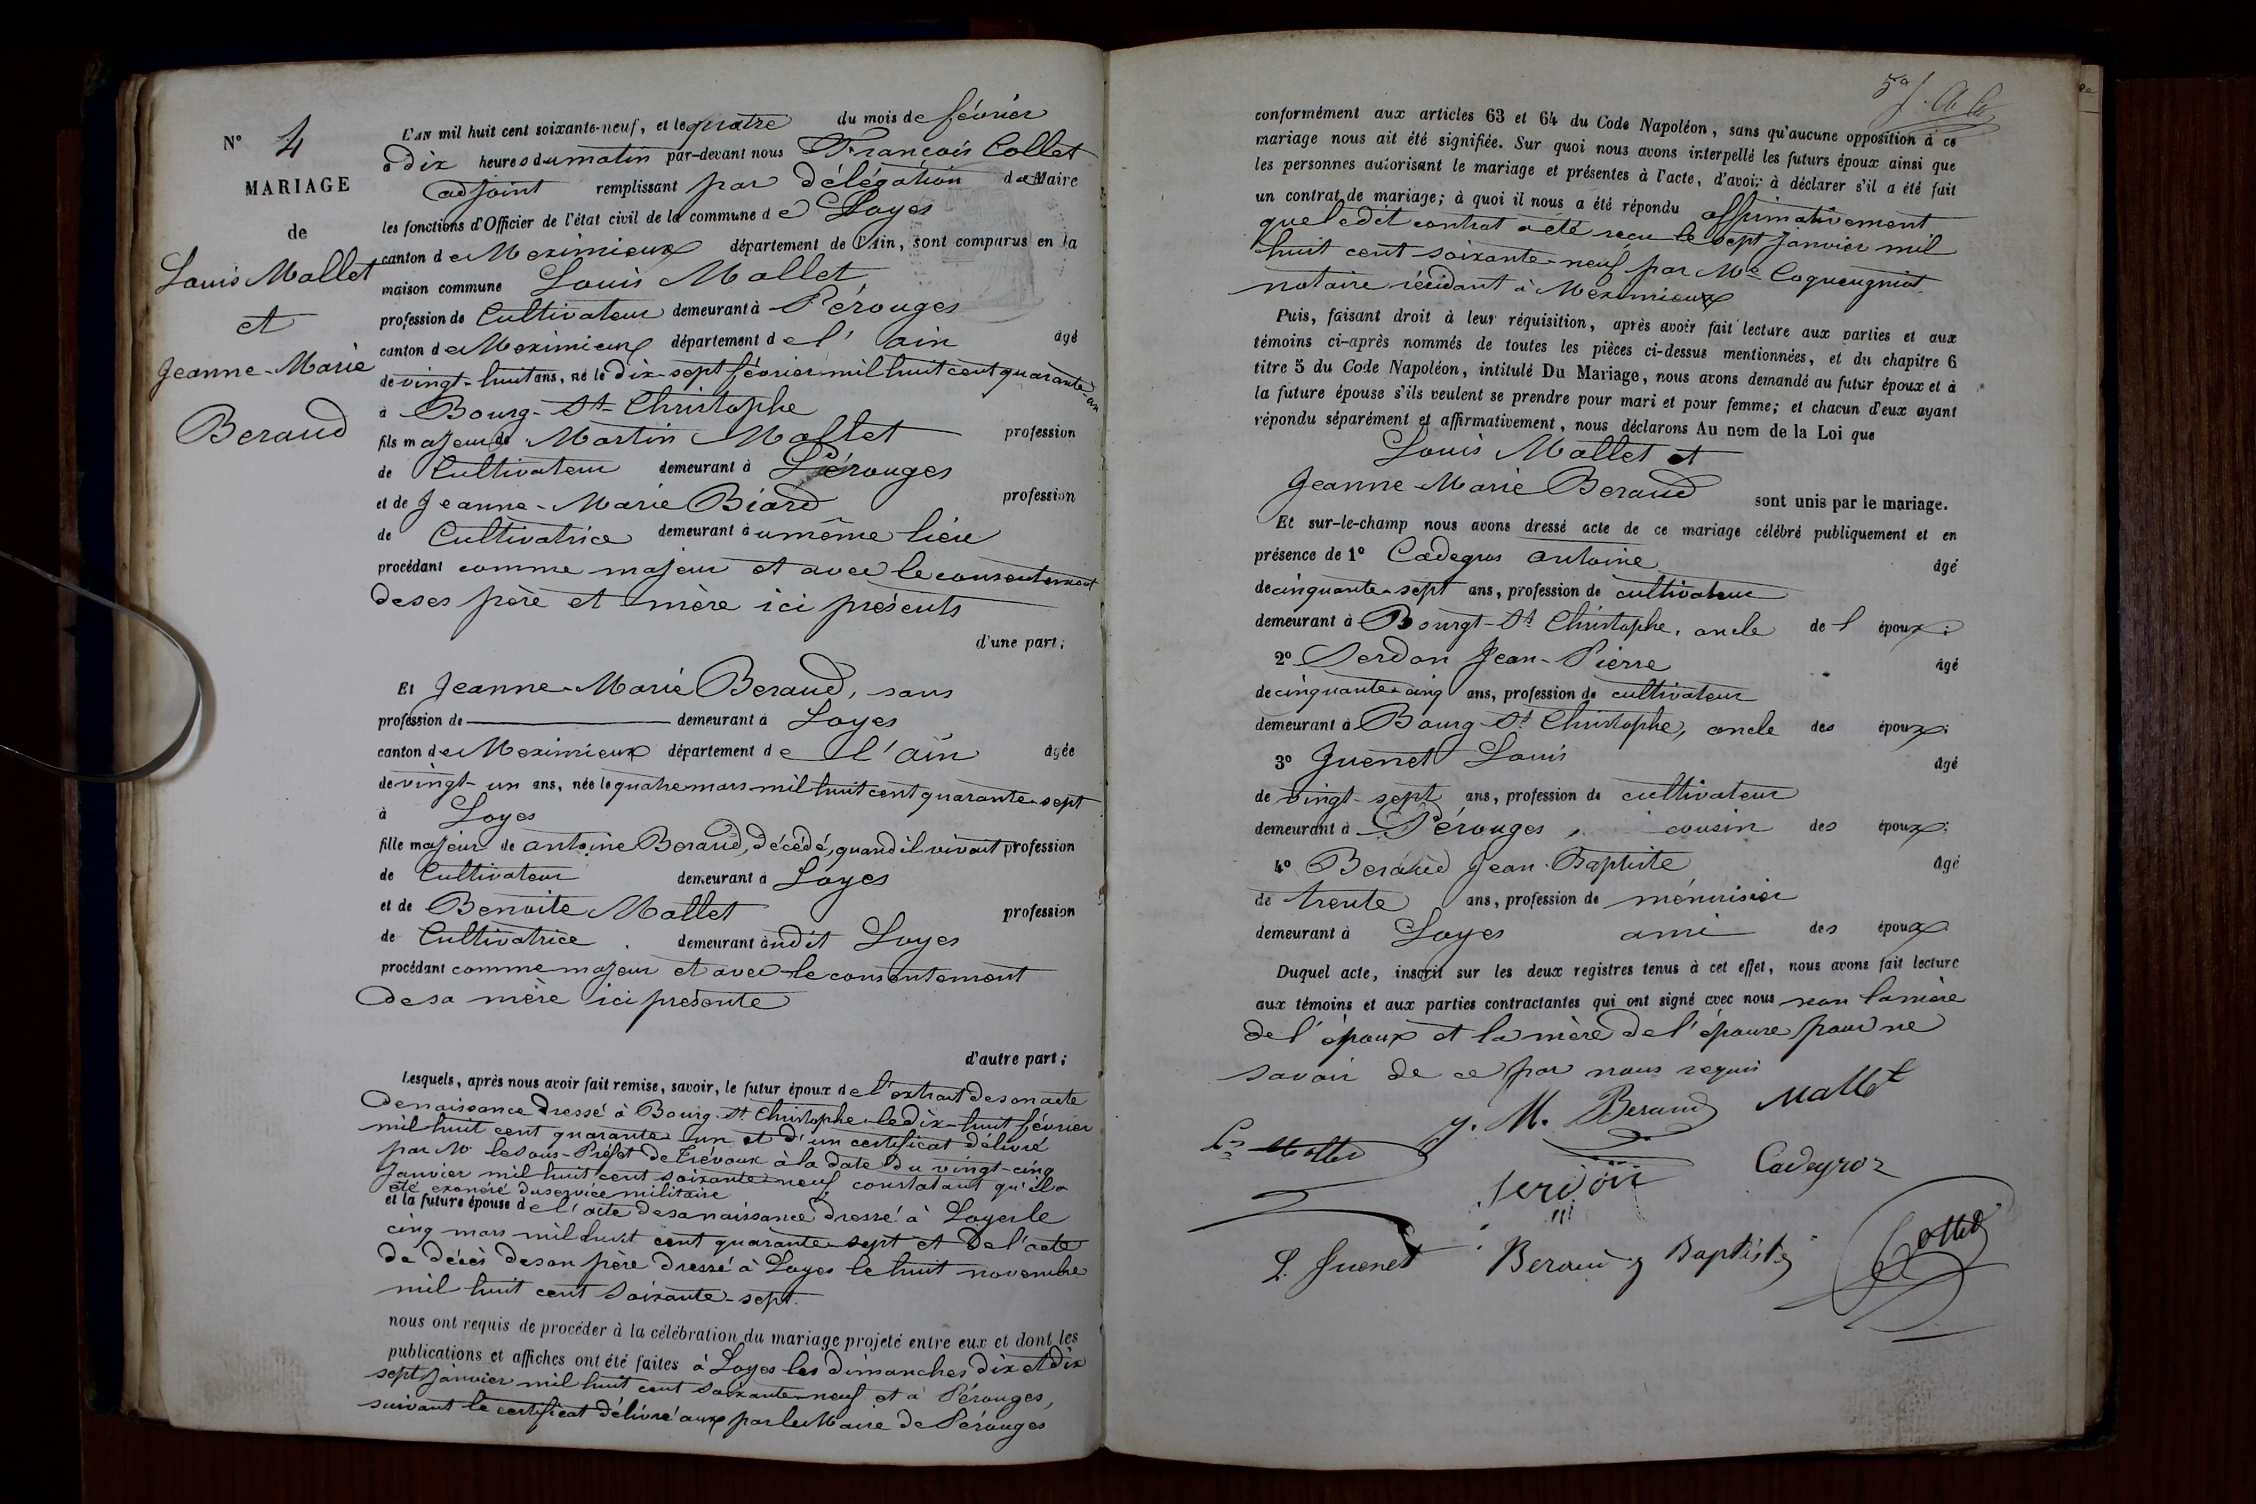 N° 4
MARIAGE
de
Louis Mallet
et
Jeanne-Marie
Beraud
L'AN mil huit cent soixante-neuf, et le quatre du mois de février
à dix heures du matin par-devant nous François Collet
adjoint remplissant par délégation du Maire
les fonctions d'Officier de l'état civil de la commune de Loyes
canton de Meximieux département de l'Ain, sont comparus en la
maison commune Louis Mallet
profession de Cultivateur demeurant à Pérouges
canton de Meximieux département de l'ain âgé
de vingt-huit ans, né le dix-sept février mil huit cent quarante-un
à Bourg-St-Christophe
fils majeur de Martin Mallet profession
de Cultivateur demeurant à Pérouges
et de Jeanne-Marie Biard profession
de Cultivatrice demeurant au même lieu
procédant comme majeur et avec le consentement
de ses père et mère ici présents
d'une part;
Et Jeanne-Marie Beraud, sans
profession de demeurant à Loyes
canton de Meximieux département de l'ain âgée
de vingt-un ans, née le quatre mars mil huit cent quarante-sept
à Loyes
fille majeur de antoine Beraud, décédé, quand il vivait profession
de Cultivateur demeurant à Loyes
et de Benoite Mallet profession
de Cultivatrice demeurant audit Loyes
procédant comme majeur et avec le consentement
de sa mère ici présente
d'autre part;
Lesquels, après nous avoir fait remise, savoir, le futur époux de l'extrait de son acte
de naissance dressé à Bourg-St Christophe le dix-huit février
mil huit cent quarante-un et d'un certificat délivré
par Mr le Sous-Préfet de Trévoux à la date du vingt-cinq
Janvier mil huit cent soixante-neuf constatant qu'il a
été exonéré du service militaire
et la future épouse de l'acte de sa naissance dressé à Loyes le
cinq mars mil huit cent quarante-sept et de l'acte
de décès de son père dressé à Loyes le huit novembre
mil huit cent soixante-sept.
nous ont requis de procéder à la célébration du mariage projeté entre eux et dont les
publications et affiches ont été faites à Loyes les dimanches dix et dix
sept Janvier mil huit cent soixante-neuf et à Pérouges,
suivant le certificat délivré aux par le Maire de Pérouges
conformément aux articles 63 et 64 du Code Napoléon, sans qu'aucune opposition à ce
mariage nous ait été signifiée. Sur quoi nous avons interpellé les futurs époux ainsi que
les personnes autorisant le mariage et présentes à l'acte, d'avoir à déclarer s'il a été fait
un contrat de mariage; à quoi il nous a été répondu affirmativement
que ledit contrat a été reçu le sept janvier mil
huit cent soixante-neuf par Me Coqueugniot
notaire résidant à Meximieux
Puis, faisant droit à leur réquisition, après avoir fait lecture aux parties et aux
témoins ci-après nommés de toutes les pièces ci-dessus mentionnées, et du chapitre 6
titre 5 du Code Napoléon, intitulé Du Mariage, nous avons demandé au futur époux et à
la future épouse s'ils veulent se prendre pour mari et pour femme; et chacun d'eux ayant
répondu séparément et affirmativement, nous déclarons Au nom de la Loi que
Louis Mallet et
Jeanne Marie Beraud sont unis par le mariage.
Et sur-le-champ nous avons dressé acte de ce mariage célébré publiquement et en
présence de 1° Cadegros antoine âgé
de cinquante-sept ans, profession de cultivateur
demeurant à Bourgt-St Christophe, oncle de l époux;
2° Serdon Jean-Pierre âgé
de cinquante-cinq ans, profession de cultivateur
demeurant à Bourg-St Christophe, oncle des époux;
3° Guenet Louis âgé
de vingt-sept ans, profession de cultivateur
demeurant à Pérouges, cousin des époux;
4° Beraud Jean-Baptiste âgé
de trente ans, profession de ménuisier
demeurant à Loyes ami des époux
Duquel acte, inscrit sur les deux registres tenus à cet effet, nous avons fait lecture
aux témoins et aux parties contractantes qui ont signé avec nous non la mère
de l'époux et la mère de l'épouse pour ne
savoir de ce par nous requis
J. M. Beraud Mallet
Ls Mallet
Serdon Cadegroz
L. Guenet Beraud Baptiste Collet